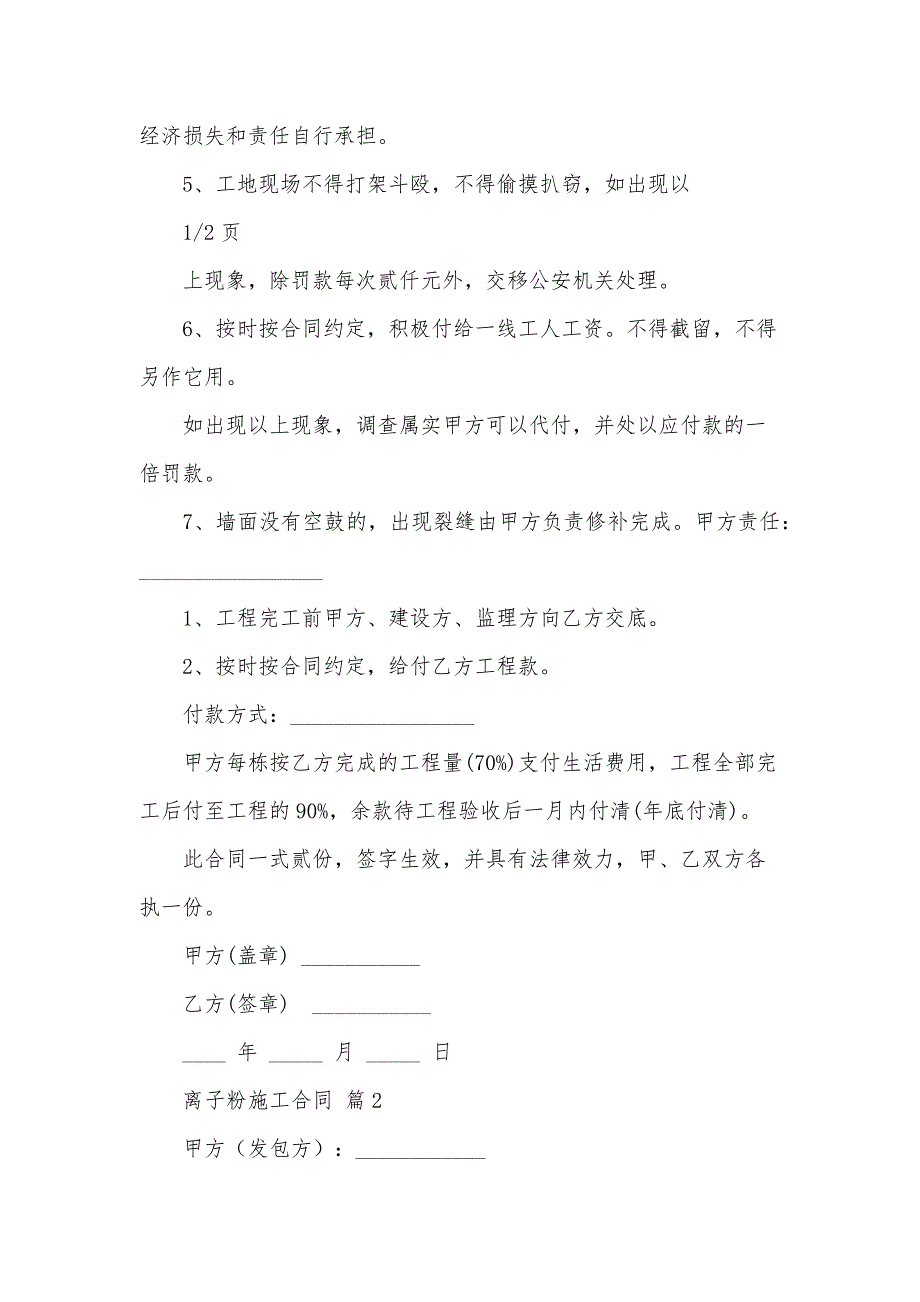 经济损失和责任自行承担。
5、工地现场不得打架斗殴，不得偷摸扒窃，如出现以
1/2 页
上现象，除罚款每次贰仟元外，交移公安机关处理。
6、按时按合同约定，积极付给一线工人工资。不得截留，不得
另作它用。
如出现以上现象，调查属实甲方可以代付，并处以应付款的一
倍罚款。
7、墙面没有空鼓的，出现裂缝由甲方负责修补完成。甲方责任：
_________________
1、工程完工前甲方、建设方、监理方向乙方交底。
2、按时按合同约定，给付乙方工程款。
付款方式：_________________
甲方每栋按乙方完成的工程量(70%)支付生活费用，工程全部完
工后付至工程的 90%，余款待工程验收后一月内付清(年底付清)。
此合同一式贰份，签字生效，并具有法律效力，甲、乙双方各
执一份。
甲方(盖章) ___________
乙方(签章) ___________
____ 年 _____ 月 _____ 日
离子粉施工合同 篇 2
甲方（发包方）：____________